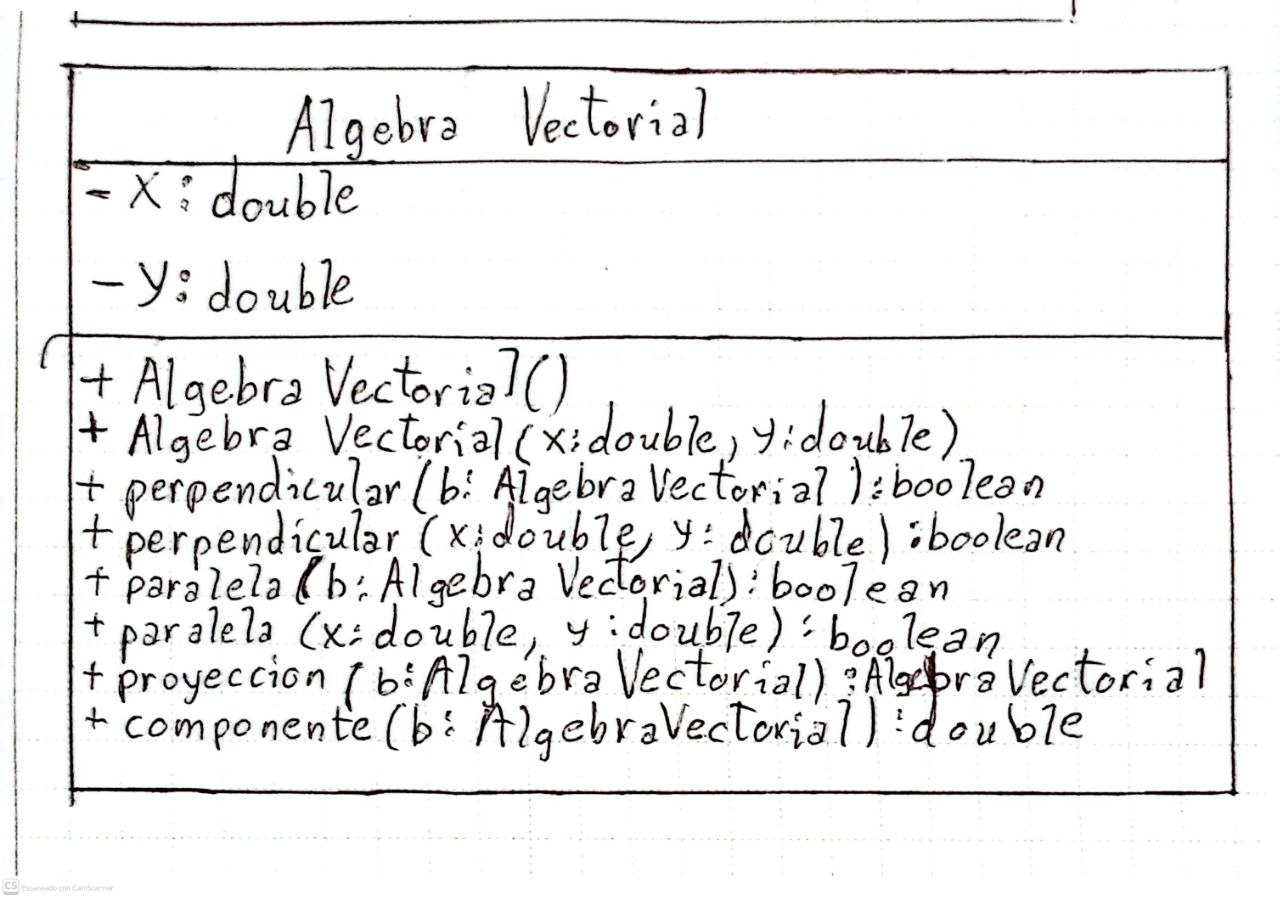 Algebra Vectorial
- X: double
- Y: double
+ Algebra Vectorial()
+ Algebra Vectorial(x:double, y:double)
+ perpendicular(b: Algebra Vectorial):boolean
+ perpendicular (x:double, y: double) :boolean
+ paralela(b: Algebra Vectorial): boolean
+ paralela (x: double, y :double) : boolean
+ proyeccion (b:Algebra Vectorial) :Algebra Vectorial
+ componente(b: AlgebraVectorial) :double
CS Escaneado con CamScanner